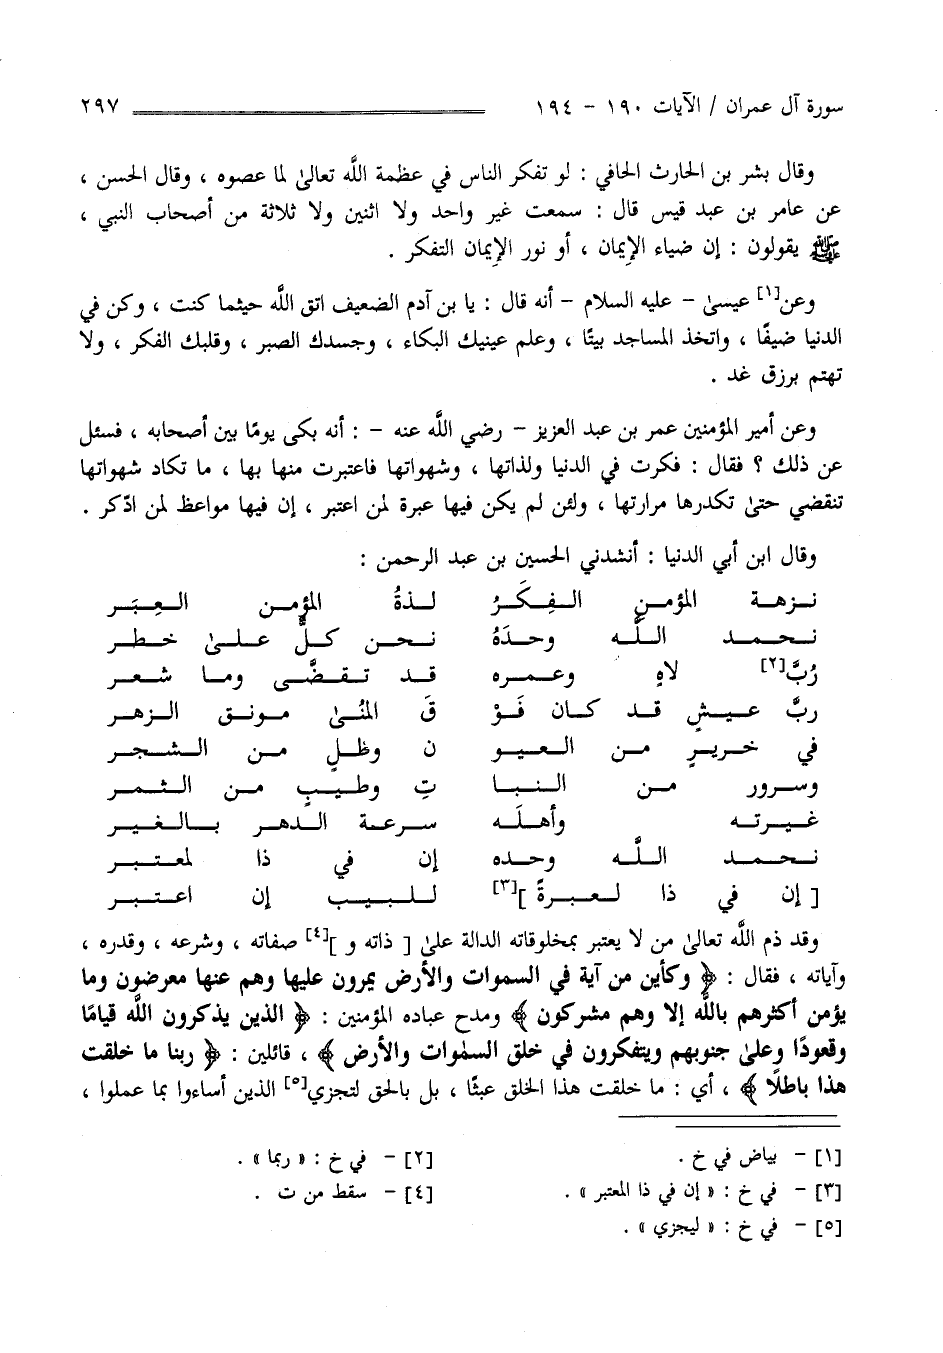 سورة آل عمران / الآيات ١٩٠ - ١٩٤ ٢٩٧
وقال بشر بن الحارث الحافي : لو تفكر الناس في عظمة اللَّه تعالىٰ لما عصوه ، وقال الحسن ،
عن عامر بن عبد قيس قال : سمعت غير واحد ولا اثنين ولا ثلاثة من أصحاب النبي ،
ﷺ يقولون : إن ضياء الإيمان ، أو نور الإيمان التفكر .
وعن[١] عيسىٰ - عليه السلام - أنه قال : يا بن آدم الضعيف اتق اللَّه حيثما كنت ، وكن في
الدنيا ضيفًا ، واتخذ المساجد بيتًا ، وعلم عينيك البكاء ، وجسدك الصبر ، وقلبك الفكر ، ولا
تهتم برزق غد .
وعن أمير المؤمنين عمر بن عبد العزيز - رضي اللَّه عنه - : أنه بكى يومًا بين أصحابه ، فسئل
عن ذلك ؟ فقال : فكرت في الدنيا ولذاتها ، وشهواتها فاعتبرت منها بها ، ما تكاد شهواتها
تنقضي حتىٰ تكدرها مرارتها ، ولئن لم يكن فيها عبرة لمن اعتبر ، إن فيها مواعظ لمن ادّكر .
وقال ابن أبي الدنيا : أنشدني الحسين بن عبد الرحمن :
نزهة المؤمنِ الفِكَرُ لذةُ المؤمنِ العِبَر
نحمد اللَّه وحدَهُ نحن كلٌّ علىٰ خطر
رُبَّ[٢] لاهٍ وعمره قد تقضَّى وما شعر
ربَّ عيشٍ قد كان فَوْ قَ المُنىٰ مونق الزهر
في خريرٍ من العيو ن وظلٍ من الشجر
وسرور من النبا تِ وطيبٍ من الثمر
غيرته وأهلَه سرعة الدهر بالغير
نحمد اللَّه وحده إن في ذا لمعتبر
[ إن في ذا لعبرةً ][٣] للبيب إن اعتبر
وقد ذم اللَّه تعالىٰ من لا يعتبر بمخلوقاته الدالة علىٰ [ ذاته و ][٤] صفاته ، وشرعه ، وقدره ،
وآياته ، فقال : ﴿ وكأين من آية في السموات والأرض يمرون عليها وهم عنها معرضون وما
يؤمن أكثرهم باللَّه إلا وهم مشركون ﴾ ومدح عباده المؤمنين : ﴿ الذين يذكرون اللَّه قيامًا
وقعودًا وعلىٰ جنوبهم ويتفكرون في خلق السمٰوات والأرض ﴾ ، قائلين : ﴿ ربنا ما خلقت
هذا باطلًا ﴾ ، أي : ما خلقت هذا الخلق عبثًا ، بل بالحق لتجزي[٥] الذين أساءوا بما عملوا ،
[١] - بياض في خ .
[٢] - في خ : « ربما » .
[٣] - في خ : « إن في ذا المعتبر » .
[٤] - سقط من ت .
[٥] - في خ : « ليجزي » .